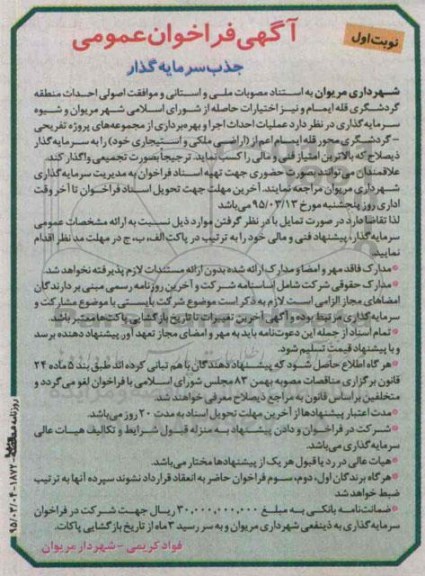 آگهی فراخوان عمومی
نوبت اول
جذب سرمایه گذار
شهرداری مریوان به استناد مصوبات ملی و استانی و موافقت اصولی احداث منطقه
گردشگری قله ایمام و نیز اختیارات حاصله از شورای اسلامی شهر مریوان و شیوه
سرمایه گذاری در نظر دارد عملیات احداث اجرا و بهره برداری از مجموعه های پروژه تفریحی
- گردشگری محور قله ایمام اعم از (اراضی ملکی و استیجاری خود) را به سرمایه گذار
ذیصلاح که بالاترین امتیاز فنی و مالی را کسب نماید. ترجیحاً بصورت تجمیعی واگذار کند.
علاقمندان می توانند بصورت حضوری جهت تهیه اسناد فراخوان به مدیریت سرمایه گذاری
شهرداری مریوان مراجعه نمایند. آخرین مهلت جهت تحویل اسناد فراخوان تا آخر وقت
اداری روز پنجشنبه مورخ ۹۵/۰۳/۱۳ می باشد
لذا تقاضا دارد در صورت تمایل با در نظر گرفتن موارد ذیل نسبت به ارائه مشخصات عمومی
سرمایه گذار، پیشنهاد فنی و مالی خود را به ترتیب در پاکت الف، ب، ج در مهلت مد نظر اقدام
نمایید.
مدارک فاقد مهر و امضا و مدارک ارائه شده بدون ارائه مستندات لازم پذیرفته نخواهد شد.
مدارک حقوقی شرکت شامل اساسنامه شرکت و آخرین روزنامه رسمی مبنی بر دارندگان
امضاهای مجاز الزامی است لازم به ذکر است موضوع شرکت بایستی با موضوع مشارکت و
سرمایه گذاری مرتبط بوده و آگهی آخرین تغییرات تا تاریخ بازگشایی پاکت ها معتبر باشد.
تمام اسناد از جمله این دعوت نامه باید به مهر و امضای مجاز تعهد آور پیشنهاد دهنده برسد
و با پیشنهاد قیمت تسلیم شود.
هر گاه اطلاع حاصل شود که پیشنهاد دهندگان با هم تبانی کرده اند طبق بند ۵ ماده ۲۴
قانون برگزاری مناقصات مصوبه بهمن ۸۳ مجلس شورای اسلامی با فراخوان لغو می گردد و
متخلفین بر اساس قانون به مراجع ذیصلاح معرفی خواهند شد.
مدت اعتبار پیشنهادها از آخرین مهلت تحویل اسناد به مدت ۲۰ روز می باشد.
شرکت در فراخوان و دادن پیشنهاد به منزله قبول شرایط و تکالیف هیات عالی
سرمایه گذاری می باشد.
هیات عالی در رد یا قبول هر یک از پیشنهادها مختار می باشد.
هر گاه برندگان اول، دوم، سوم فراخوان حاضر به انعقاد قرارداد نشوند سپرده آنها به ترتیب
ضبط خواهد شد
ضمانت نامه بانکی به مبلغ ۳۰,۰۰۰,۰۰۰,۰۰۰ ریال جهت شرکت در فراخوان
سرمایه گذاری به ذینفعی شهرداری مریوان و به سر رسید ۳ ماه از تاریخ بازگشایی پاکات.
فواد کریمی - شهردار مریوان
روزنامه ۱۸۷۲ - ۹۵/۰۳/۰۴